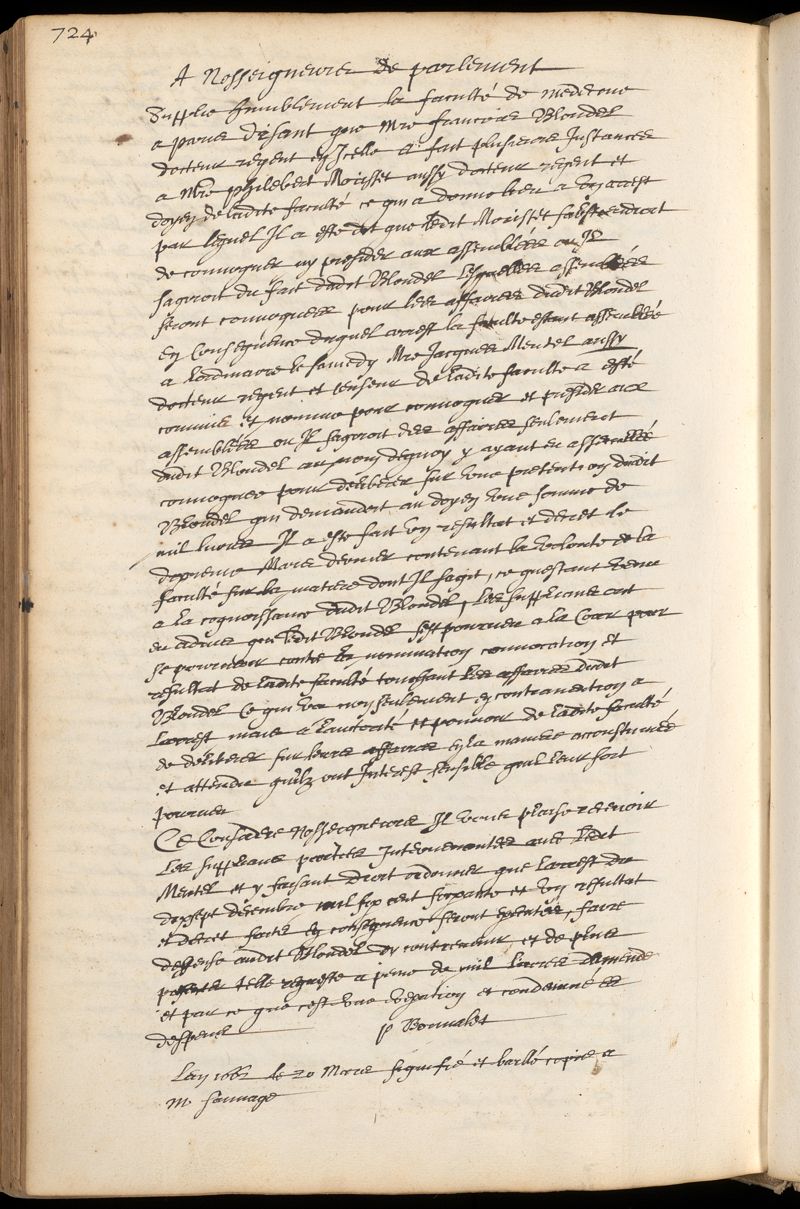 724
A Nosseigneurs de parlement
Supplie humblement la faculté de medecine
a paris disant que Mre francois Blondel
docteur regent en Icelle a fait plusieurs Instances
a Mre philebert Morisset aussy docteur regent et
doyen de ladite faculté ce qui a donné lieu a un arrest
par lequel Il a esté dit que ledit Morisset
de convoquer ny presider aux assemblées ou Il
sagiroit du fait dudit Blondel lesquelles assemblées
seront convoquees pour les affaires dudit Blondel
En consequence duquel arrest la faculte estant assemblée
a lordinaire le samedy Mre Jacques Mentel aussy
docteur regent et censeur de ladite faculte a esté
commis et nommé pour convoquer et presider aux
assemblées ou Il sagiroit des affaires seulement
dudit Blondel au moyen dequoy y ayant eu assemblée
convoquee pour deliberer sur une pretention dudit
Blondel qui demandoit au doyen une somme de
mil livres Il a esté fait un resultat et decret le
Mars dernier contenant la volonte de la
faculté sur la matiere dont Il sagit, ce questant venu
a la cognoissance dudit Blondel, les supplians ont
eu advis que ledit Blondel sest pourveu a la Cour pour
se pourvoir contre la nomination convocation et
resultat de ladite faculté touchant les affaires dudit
Blondel Ce qui va non seulement en contravention a
larrest mais a lautorité et pouvoir de ladite faculté
de deliberer sur leurs affaires en la maniere accoustumée
et attendu quilz ont Interest sensible quil leur soit
pourveu
Ce Consideré Nosseigneurs Il vous plaise recevoir
les supplians parties Intervenantes avec ledit
Mentel et y faisant droit ordonner que larrest du
dixsept decembre mil six cent soixante et un resultat
et decret faits en consequence seront executés, faire
deffense audit Blondel dy contrevenir, et de plus
presenter telle requeste a peine de mil livres damende
et par ce que cest une vexation et condamné es
despens p Bonnalet
Lan 1662 le 20 Mars signifié et baillé copie a
Mr sauvage